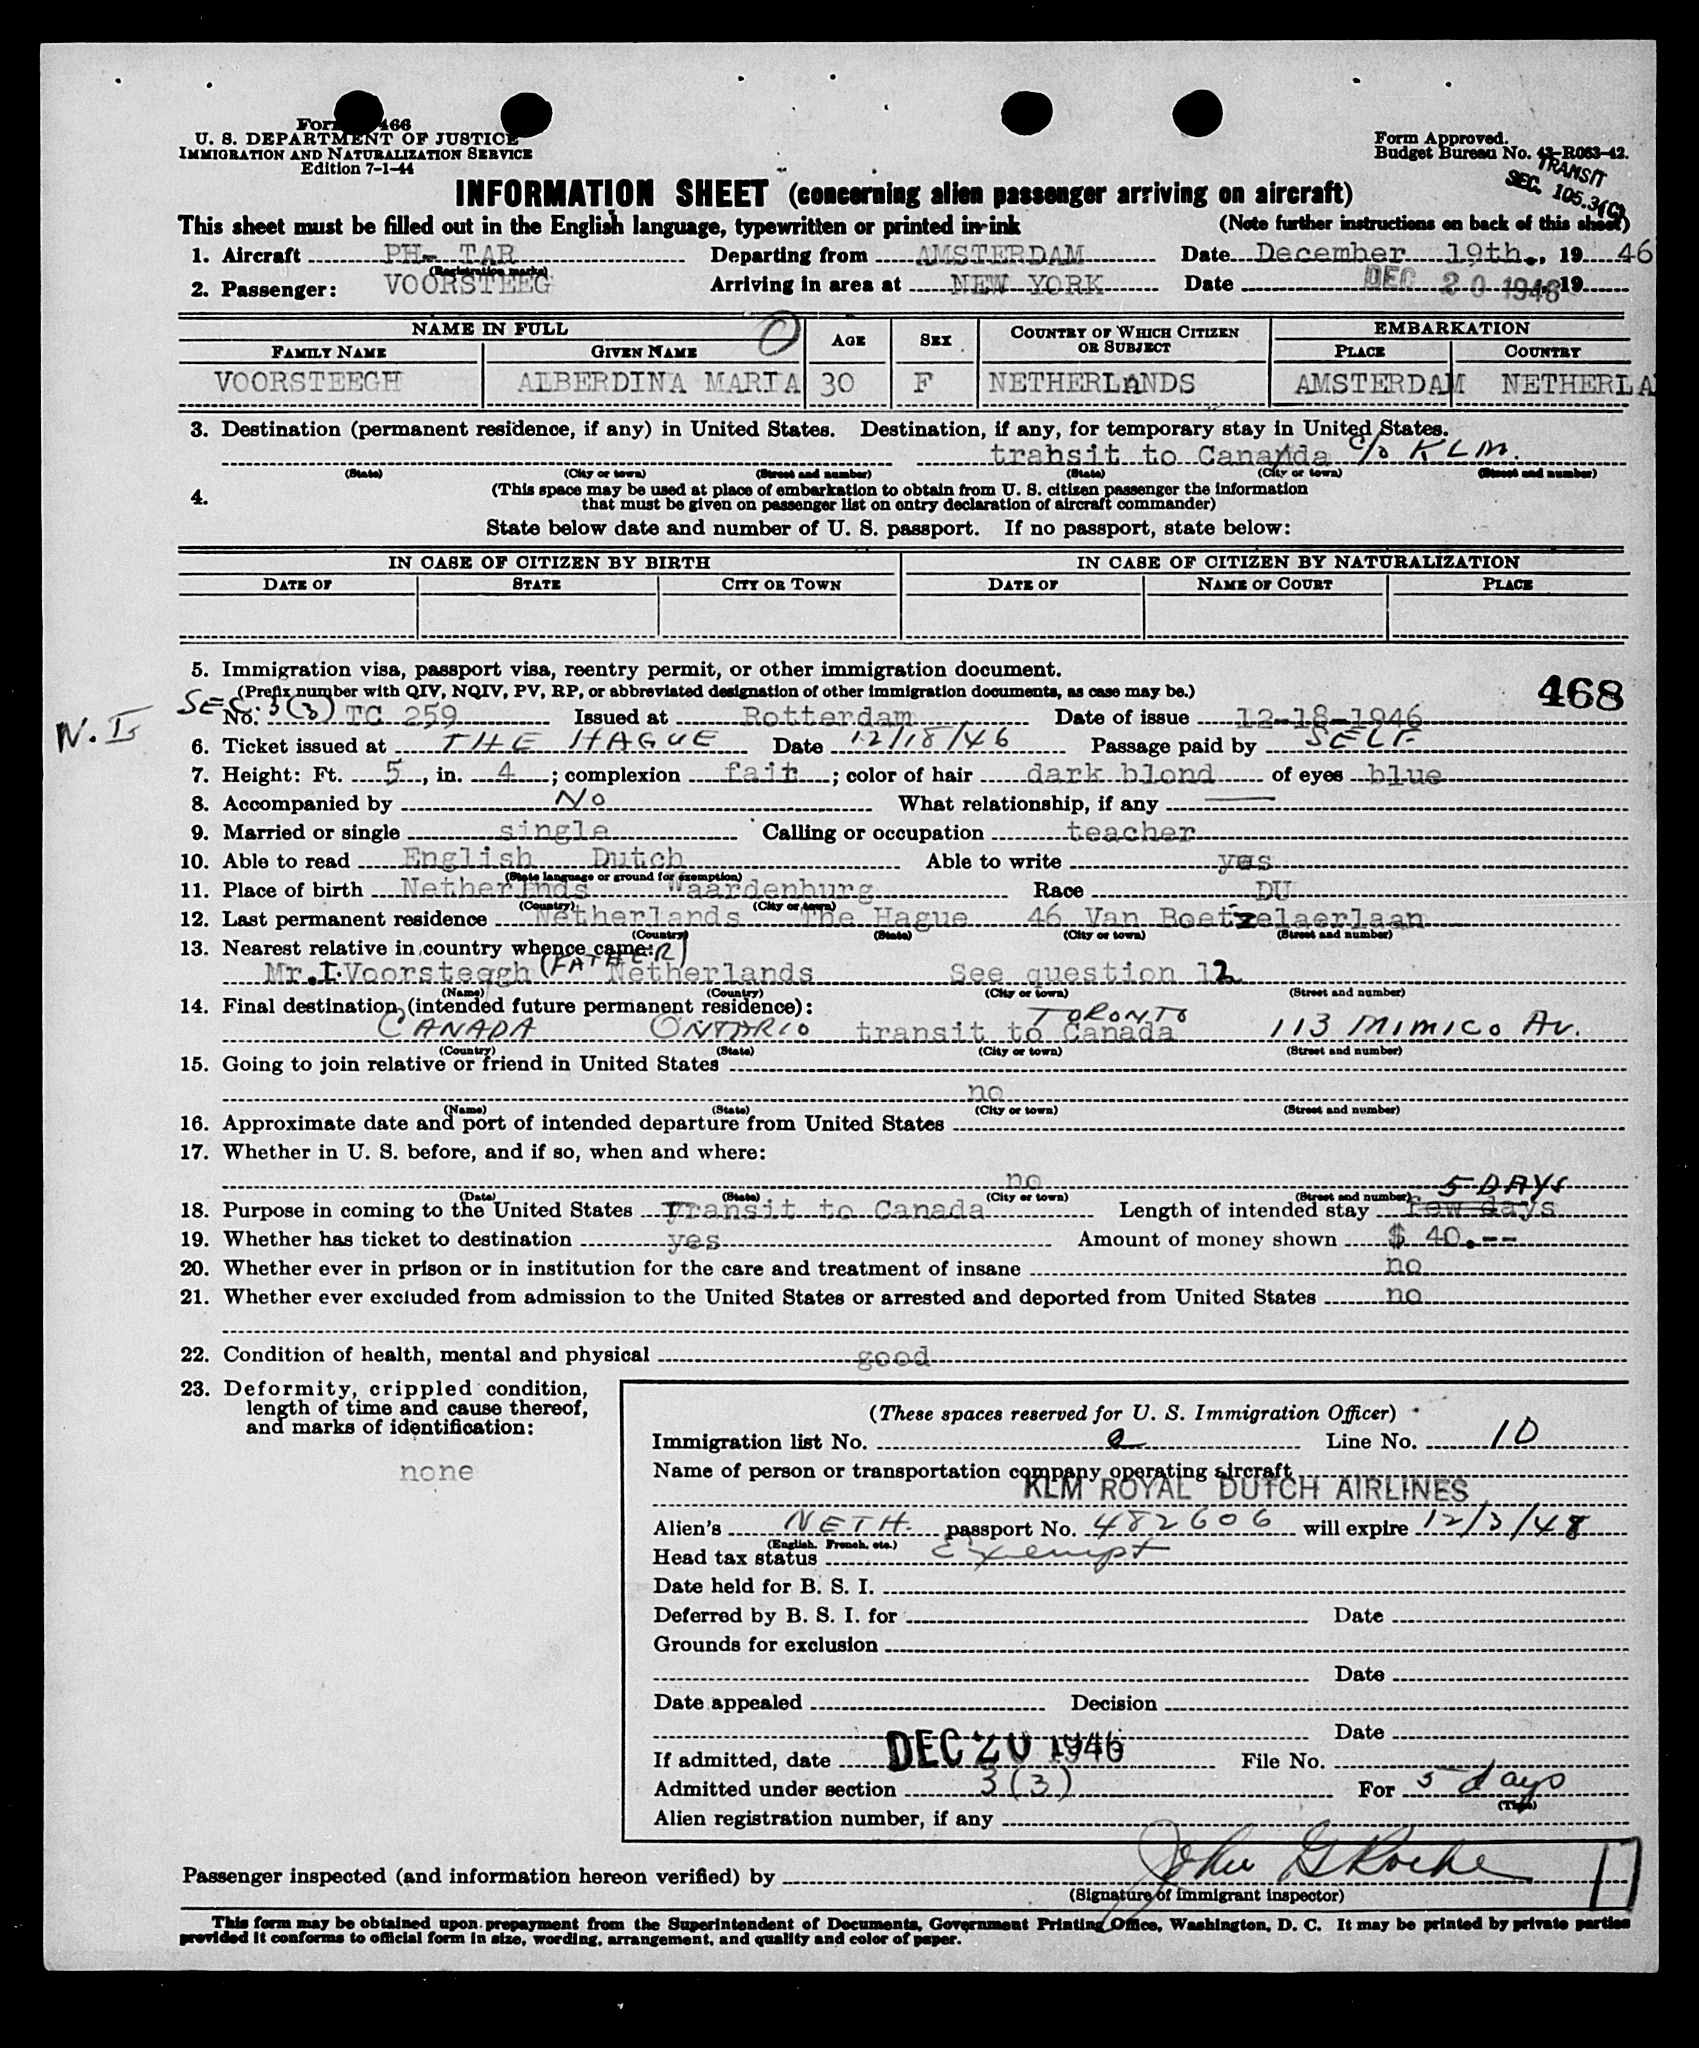 Form 466
U. S. DEPARTMENT OF JUSTICE
IMMIGRATION AND NATURALIZATION SERVICE
Edition 7-1-44
Form Approved.
Budget Bureau No. 43-R063-42.
TRANSIT
SEC. 105.3(C)
INFORMATION SHEET (concerning alien passenger arriving on aircraft)
This sheet must be filled out in the English language, typewritten or printed in ink (Note further instructions on back of this sheet)
1. Aircraft PH- TAR Departing from AMSTERDAM Date December 19th., 19 46
(Registration marks)
2. Passenger: VOORSTEEG Arriving in area at NEW YORK Date DEC 20 1946 19
NAME IN FULL AGE SEX COUNTRY OF WHICH CITIZEN OR SUBJECT EMBARKATION
FAMILY NAME GIVEN NAME PLACE COUNTRY
VOORSTEEGH ALBERDINA MARIA 30 F NETHERLANDS AMSTERDAM NETHERLA
3. Destination (permanent residence, if any) in United States. Destination, if any, for temporary stay in United States.
transit to Canada c/o KLM.
(State) (City or town) (Street and number) (State) (City or town) (Street and number)
4. (This space may be used at place of embarkation to obtain from U. S. citizen passenger the information
that must be given on passenger list on entry declaration of aircraft commander)
State below date and number of U. S. passport. If no passport, state below:
IN CASE OF CITIZEN BY BIRTH IN CASE OF CITIZEN BY NATURALIZATION
DATE OF STATE CITY OR TOWN DATE OF NAME OF COURT PLACE
5. Immigration visa, passport visa, reentry permit, or other immigration document.
(Prefix number with QIV, NQIV, PV, RP, or abbreviated designation of other immigration documents, as case may be.) 468
SEC. 3(3)
No. TC 259 Issued at Rotterdam Date of issue 12-18-1946
N.I.
6. Ticket issued at THE HAGUE Date 12/18/46 Passage paid by SELF.
7. Height: Ft. 5, in. 4; complexion fair; color of hair dark blond of eyes blue
8. Accompanied by No What relationship, if any —
9. Married or single single Calling or occupation teacher
10. Able to read English Dutch Able to write yes
(State language or ground for exemption)
11. Place of birth Netherlnds Waardenburg Race DU
(Country) (City or town)
12. Last permanent residence Netherlands The Hague 46 Van Boetzelaerlaan
(Country) (State) (City or town) (Street and number)
13. Nearest relative in country whence came:
Mr. I. Voorsteggh (FATHER) Netherlands See question 12
(Name) (Country) (City or town) (Street and number)
14. Final destination (intended future permanent residence):
CANADA ONTARIO transit to Canada TORONTO 113 MIMICO Av.
(Country) (State) (City or town) (Street and number)
15. Going to join relative or friend in United States
no
(Name) (State) (City or town) (Street and number)
16. Approximate date and port of intended departure from United States
17. Whether in U. S. before, and if so, when and where:
no
(Date) (State) (City or town) (Street and number) 5 DAYS
18. Purpose in coming to the United States Transit to Canada Length of intended stay few days
19. Whether has ticket to destination yes Amount of money shown $ 40.--
20. Whether ever in prison or in institution for the care and treatment of insane no
21. Whether ever excluded from admission to the United States or arrested and deported from United States no
22. Condition of health, mental and physical good
23. Deformity, crippled condition,
length of time and cause thereof,
and marks of identification:
none
(These spaces reserved for U. S. Immigration Officer)
Immigration list No. Line No. 10
Name of person or transportation company operating aircraft
KLM ROYAL DUTCH AIRLINES
Alien's NETH. passport No. 482606 will expire 12/3/48
(English, French, etc.)
Head tax status Exempt
Date held for B. S. I.
Deferred by B. S. I. for Date
Grounds for exclusion
Date
Date appealed Decision
Date
If admitted, date DEC 20 1946 File No.
Admitted under section 3(3) For 5 days
(Time)
Alien registration number, if any
Passenger inspected (and information hereon verified) by John G Roche
(Signature of immigrant inspector)
This form may be obtained upon prepayment from the Superintendent of Documents, Government Printing Office, Washington, D. C. It may be printed by private parties
provided it conforms to official form in size, wording, arrangement, and quality and color of paper.